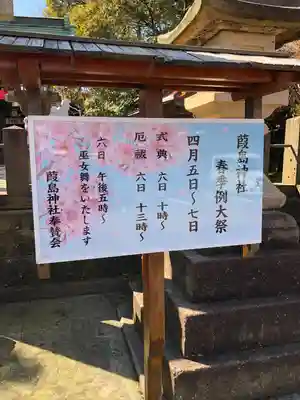 葭島神社
春季例大祭
四月五日～七日
式典 六日 十時～
厄祓 六日 十三時～
六日 午後五時～
巫女舞をいたします
葭島神社奉賛会